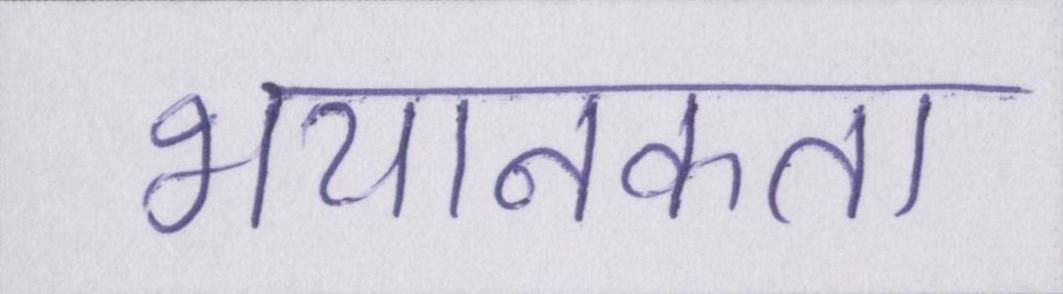 भयानकता